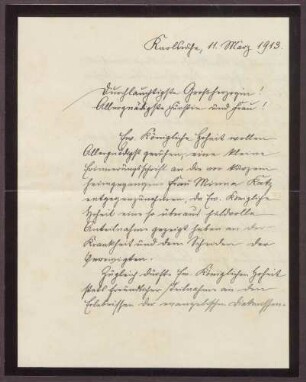 Karlsruhe, 11. März 1913.
Durchlauchtigste Großherzogin!
Allergnädigste Fürstin und Frau!
Ew. Königliche Hoheit wollen
Allergnädigst geruhen, eine kleine
Erinnerungsschrift an die vor kurzem
heimgegangene Frau Minna Katz
entgegenzunehmen, da Ew. Königliche
Hoheit eine so überaus huldvolle
Anteilnahme gezeigt haben an der
Krankheit und dem Scheiden der
Verewigten.
Zugleich dürfte Ew. Königlichen Hoheit
stets freundlicher Teilnahme an den
Erlebnissen der evangelischen